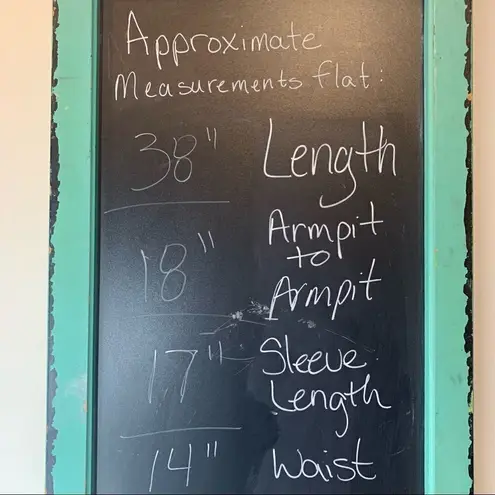 Approximate
Measurements flat:
38" Length
18" Armpit
to
Armpit
17" Sleeve
Length
14" Waist